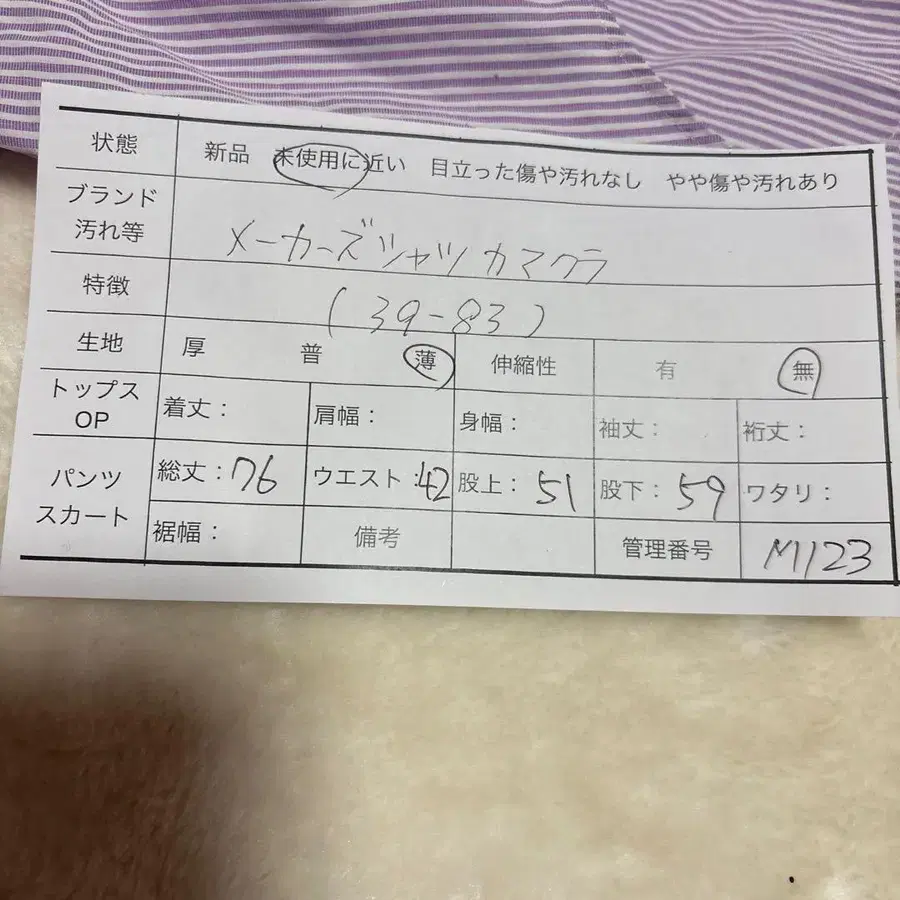 状態 新品 未使用に近い 目立った傷や汚れなし やや傷や汚れあり
ブランド
汚れ等 メーカーズシャツカマクラ
特徴 (39-83)
生地 厚 普 薄 伸縮性 有 無
トップス
OP 着丈: 肩幅: 身幅: 袖丈: 裄丈:
パンツ
スカート 総丈:76 ウエスト:42 股上:51 股下:59 ワタリ:
裾幅: 備考 管理番号 M123